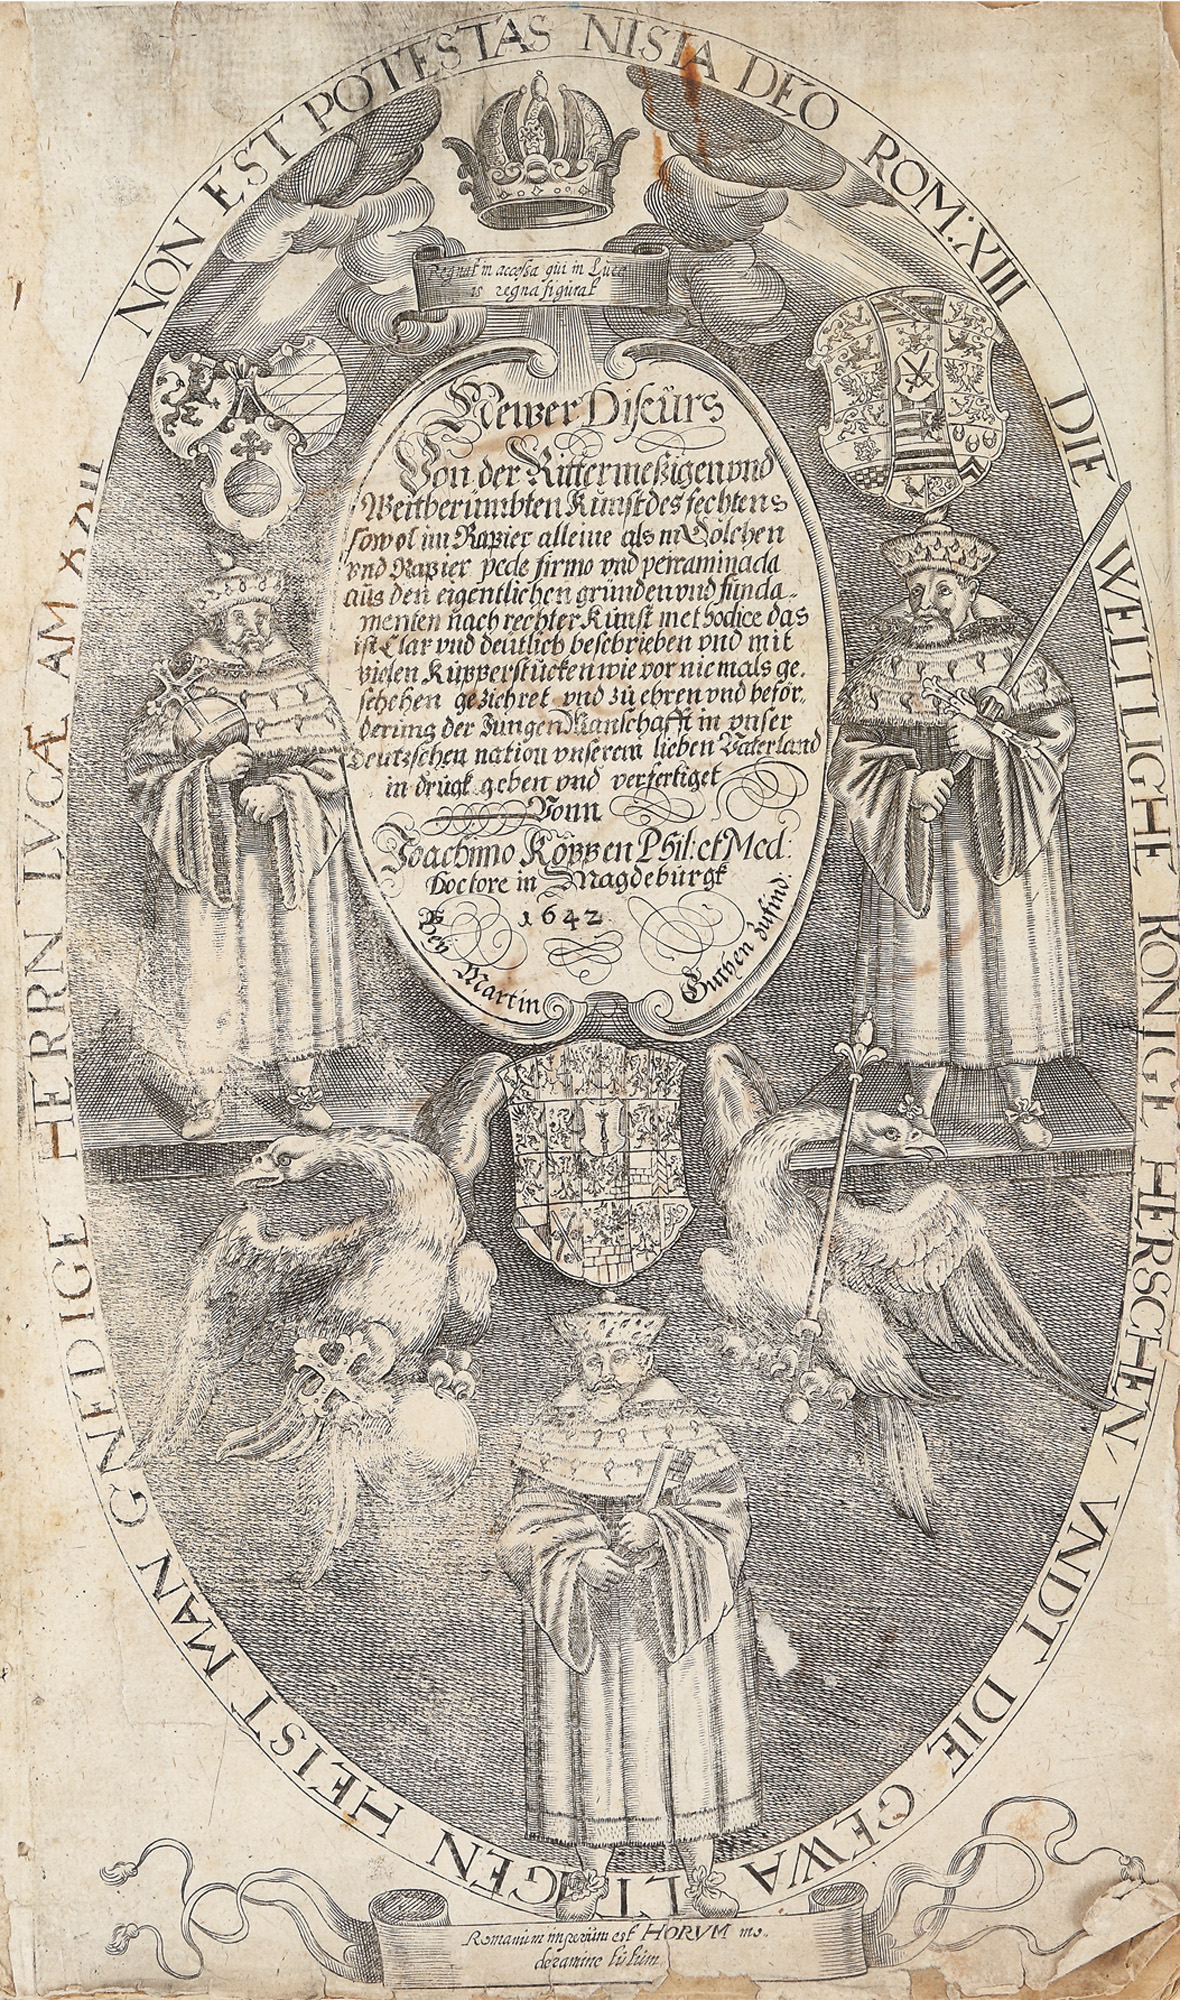 NON EST POTESTAS NISIA DEO ROM: XIII
DIE WELTLIGHE KONIGE HERSCHEN VNDT DIE GEWALTIGEN HEIST MAN GNEDIGE HERRN LVCÆ AM XXII
Regnat in accessa qui in Luce
is regna figurat
Newer Discürs
Von der Rittermeßigen vnd
Weitberümbten Kunst des fechtens
sowol im Rapier alleine als in Dölchen
vnd Rapier pede firmo vnd perraminada
aus den eigentlichen gründen vnd funda-
menten nach rechter Kunst methodice das
ist Clar vnd deütlich beschrieben vnd mit
vielen Kupperstücken wie vor niemals ge-
schehen geziehret vnd zü ehren vnd beför-
derung der Jungen Manschafft in vnser
deutzschen nation vnserem lieben Vaterland
in drugk geben vnd verfertiget
Vonn
Joachimo Köppen Phil: et Med:
Doctore in Magdeburgk
1642
Bey Martin Guthen zufind:
Romanum imperium est HORVM mo-
deramine